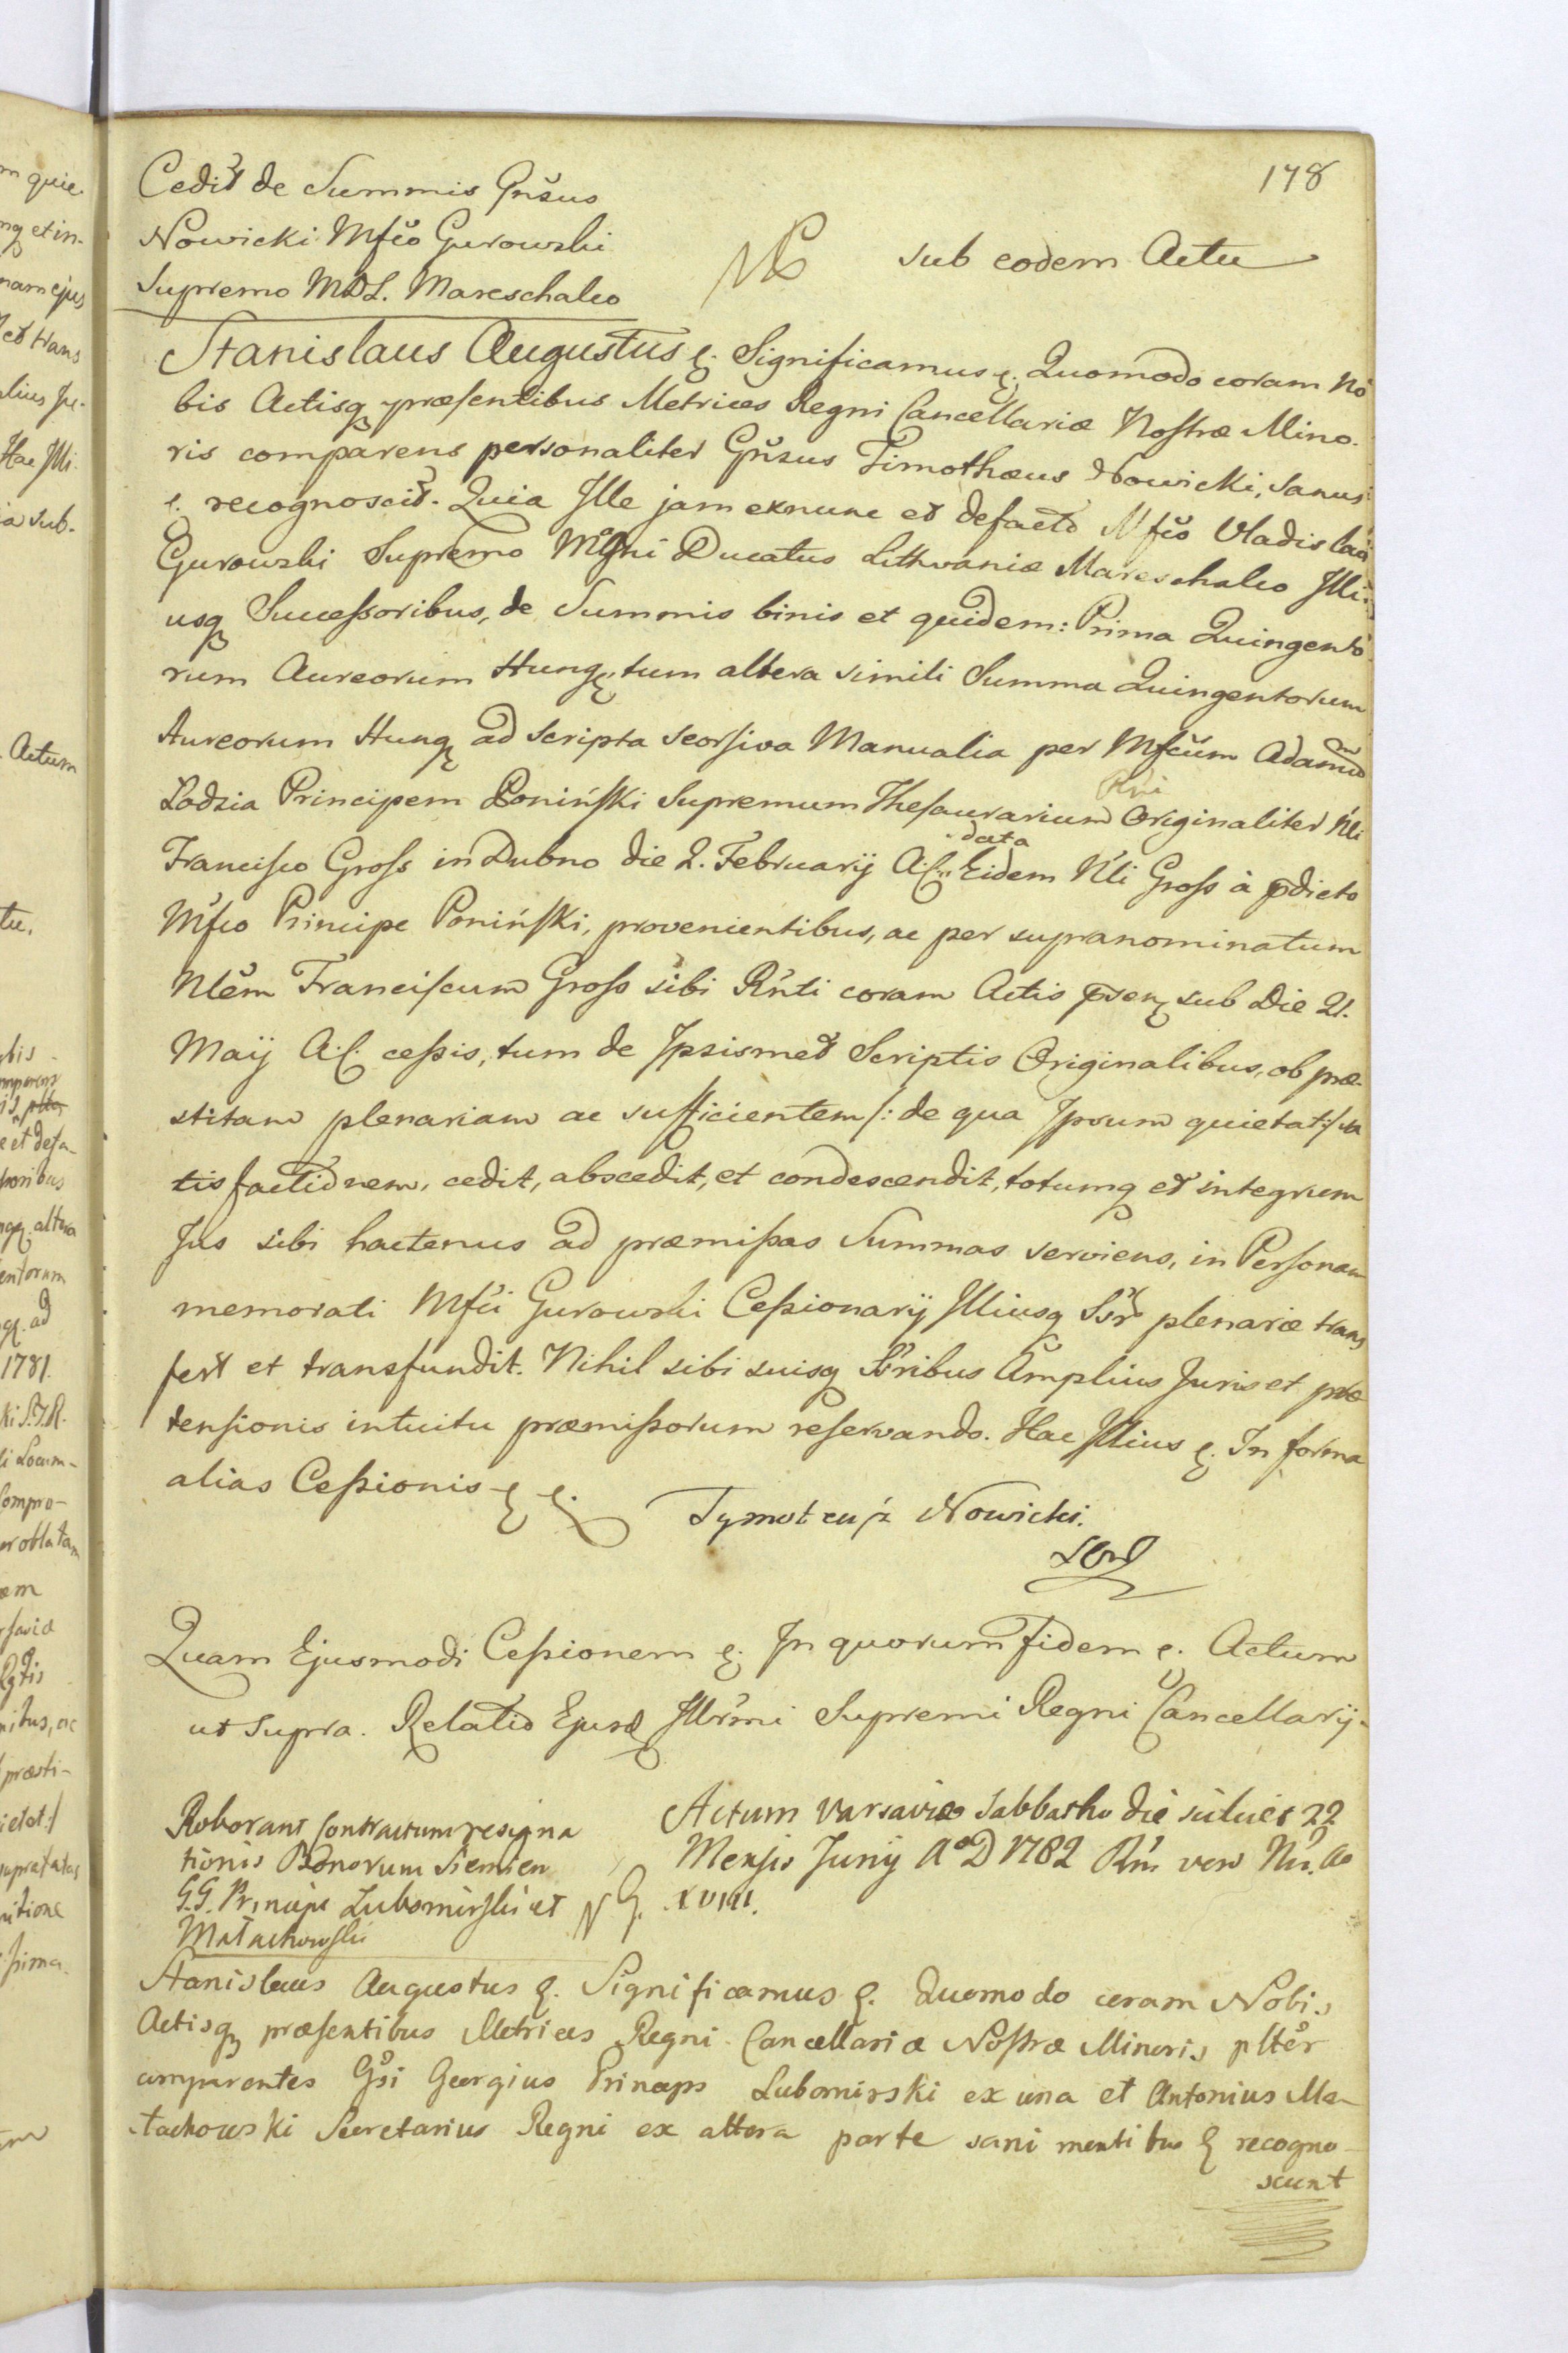 178
Cedit de Summis Gnsus
Nowicki Mfco Gurowski
Supremo MDL. Mareschalco
sub eodem Actu
Stanislaus Augustus &. Significamus &. Quomodo coram No
bis Actisq præsentibus Metrices Regni Cancellariæ Nostræ Mino-
ris comparens personaliter Gnsus Timothæus Nowicki, sanus
&. recognoscit. Quia Ille jam exnunc et defacto Mfco Vladislao
Gurowski Supremo Mgni Ducatus Lithvaniæ Mareschalco Illi-
usq Successoribus, de Summis binis et quidem: Prima Quingento
rum Aureorum Hung, tum altera simili Summa Quingentorum
Aureorum Hung ad Scripta seorsiva Manualia per Mfcum Adamum
Lodzia Principem Poniński Supremum Thesaurarium Rni Originaliter Nli
Francisco Gross in Dubno die 2. Februarij A.C. data Eidem Nli Gross à pdicto
Mfco Principe Poniński, provenientibus, ac per supranominatum
Nlem Franciscum Gross sibi Rnti coram Actis psen sub Die 21.
Maij A.C. cessis, tum de Ipsismet Scriptis Originalibus, ob præ-
stitam plenariam ac sufficientem /: de qua Ipsum quietat :/ sa
tisfactionem, cedit, abscedit, et condescendit, totumq et integrum
Jus sibi hactenus ad præmissas Summas serviens, in Personam
memorati Mfci Gurowski Cessionarij Illiusq Ssr plenarie trans
fert et transfundit. Nihil sibi suisq Ssribus Amplius Juris et præ
tensionis intuitu præmissorum reservando. Hac Illius &. In forma
alias Cessionis & &.
Tymoteusz Nowicki.
Quam Ejusmodi Cessionem &. In quorum fidem &. Actum
ut supra. Relatio Ejusd Illrmi Supremi Regni Cancellarij.
Roborant Contractum resigna
tionis Bonorum Siemien
G.G. Princips Lubomirski et
Małachowski
Actum Varsaviæ Sabbatho die scilicet 22
Mensis Junij A°D 1782 Rni vero Nri. Ao
XVIII.
Stanislaus Augustus &. Significamus &. Quomodo coram Nobis
Actisq præsentibus Metrices Regni Cancellariæ Nostræ Minoris plter
comparentes Gsi Georgius Princeps Lubomirski ex una et Antonius Ma-
łachowski Secretarius Regni ex altera parte sani mentibus & recogno-
scunt